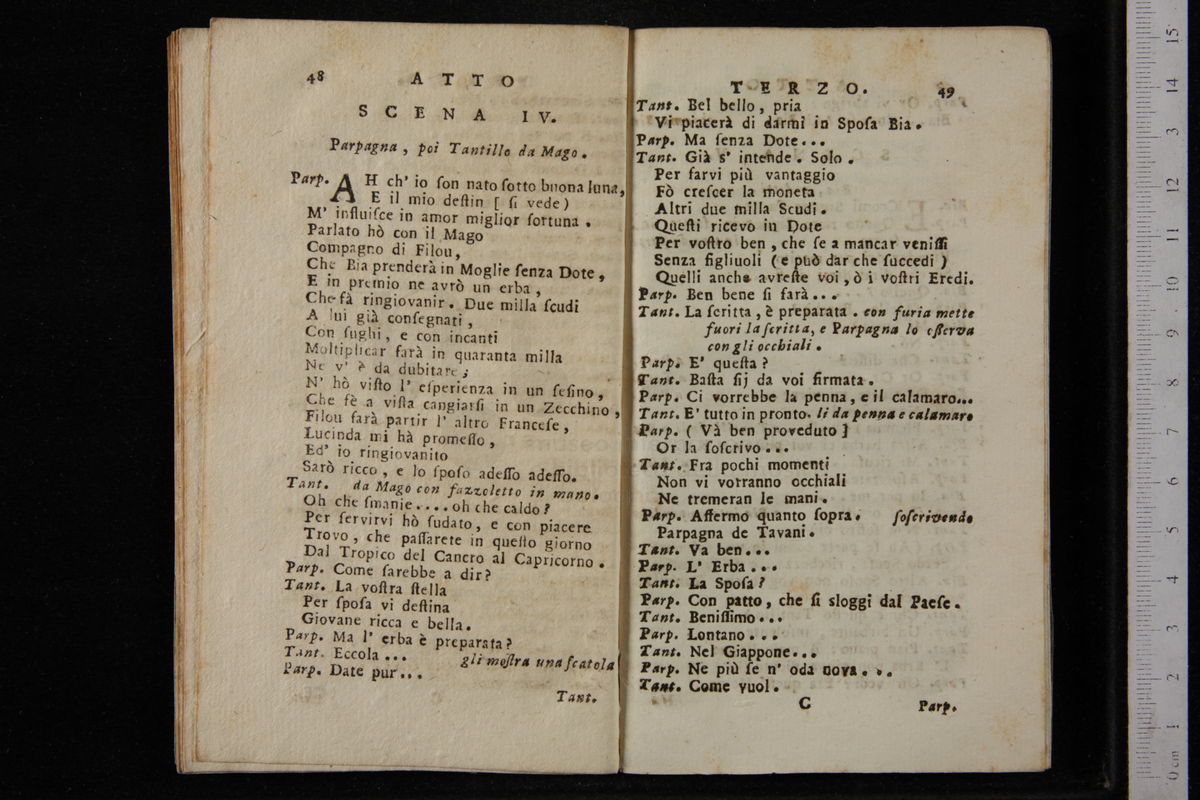 48 ATTO
SCENA IV.
Parpagna, poi Tantillo da Mago.
Parp. AH ch' io ſon nato ſotto buona luna,
E il mio deſtin [ ſi vede)
M' influiſce in amor miglior fortuna.
Parlato hò con il Mago
Compagno di Filou,
Che Bia prenderà in Moglie ſenza Dote,
E in premio ne avrò un erba,
Che fà ringiovanir. Due milla ſcudi
A lui già conſegnati,
Con ſughi, e con incanti
Moltiplicar farà in quaranta milla
Ne v' è da dubitare;
N' hò viſto l' eſperienza in un ſeſino,
Che fè a viſta cangiarſi in un Zecchino,
Filou farà partir l' altro Franceſe,
Lucinda mi hà promeſſo,
Ed' io ringiovanito
Sarò ricco, e lo ſpoſo adeſſo adeſſo.
Tant. da Mago con fazzoletto in mano.
Oh che ſmanie.... oh che caldo?
Per ſervirvi hò ſudato, e con piacere
Trovo, che paſſarete in queſto giorno
Dal Tropico del Cancro al Capricorno.
Parp. Come ſarebbe a dir?
Tant. La voſtra ſtella
Per ſpoſa vi deſtina
Giovane ricca e bella.
Parp. Ma l' erba è preparata?
Tant. Eccola... gli moſtra una ſcatola
Parp. Date pur...
Tant.
TERZO. 49
Tant. Bel bello, pria
Vi piacerà di darmi in Spoſa Bia.
Parp. Ma ſenza Dote...
Tant. Già s' intende. Solo.
Per farvi più vantaggio
Fò creſcer la moneta
Altri due milla Scudi.
Queſti ricevo in Dote
Per voſtro ben, che ſe a mancar veniſſi
Senza figliuoli (e può dar che ſuccedi)
Quelli anche avreſte voi, ò i voſtri Eredi.
Parp. Ben bene ſi farà...
Tant. La ſcritta, è preparata. con furia mette
fuori la ſcritta, e Parpagna lo oſſerva
con gli occhiali.
Parp. E' queſta?
Tant. Baſta ſij da voi firmata.
Parp. Ci vorrebbe la penna, e il calamaro...
Tant. E' tutto in pronto. li da penna e calamaro
Parp. ( Và ben proveduto ]
Or la ſoſcrivo...
Tant. Fra pochi momenti
Non vi vorranno occhiali
Ne tremeran le mani.
Parp. Affermo quanto ſopra. ſoſcrivendo
Parpagna de Tavani.
Tant. Va ben...
Parp. L' Erba...
Tant. La Spoſa?
Parp. Con patto, che ſi sloggi dal Paeſe.
Tant. Beniſſimo...
Parp. Lontano...
Tant. Nel Giappone...
Parp. Ne più ſe n' oda nova...
Tant. Come vuol.
C Parp.